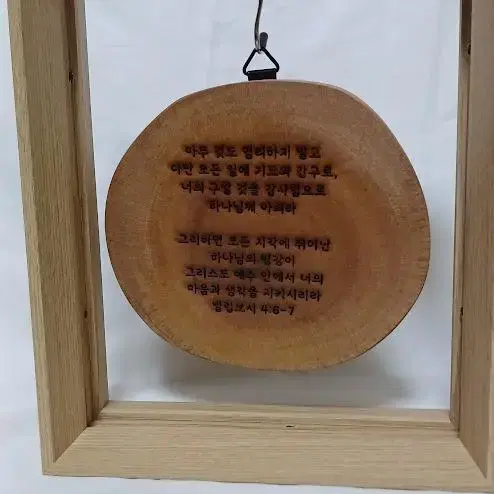 아무 것도 염려하지 말고
다만 모든 일에 기도와 간구로,
너희 구할 것을 감사함으로
하나님께 아뢰라
그리하면 모든 지각에 뛰어난
하나님의 평강이
그리스도 예수 안에서 너희
마음과 생각을 지키시리라
빌립보서 4:6-7